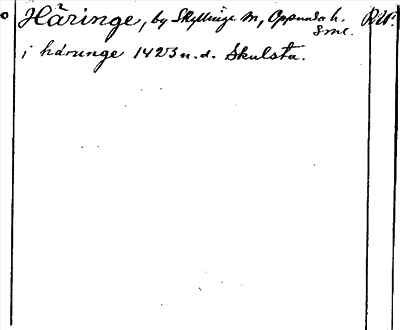 Häringe, by Skyllinge sn, Oppunda h. Sml.
i hårunge 1423 n.d. Skulsta.